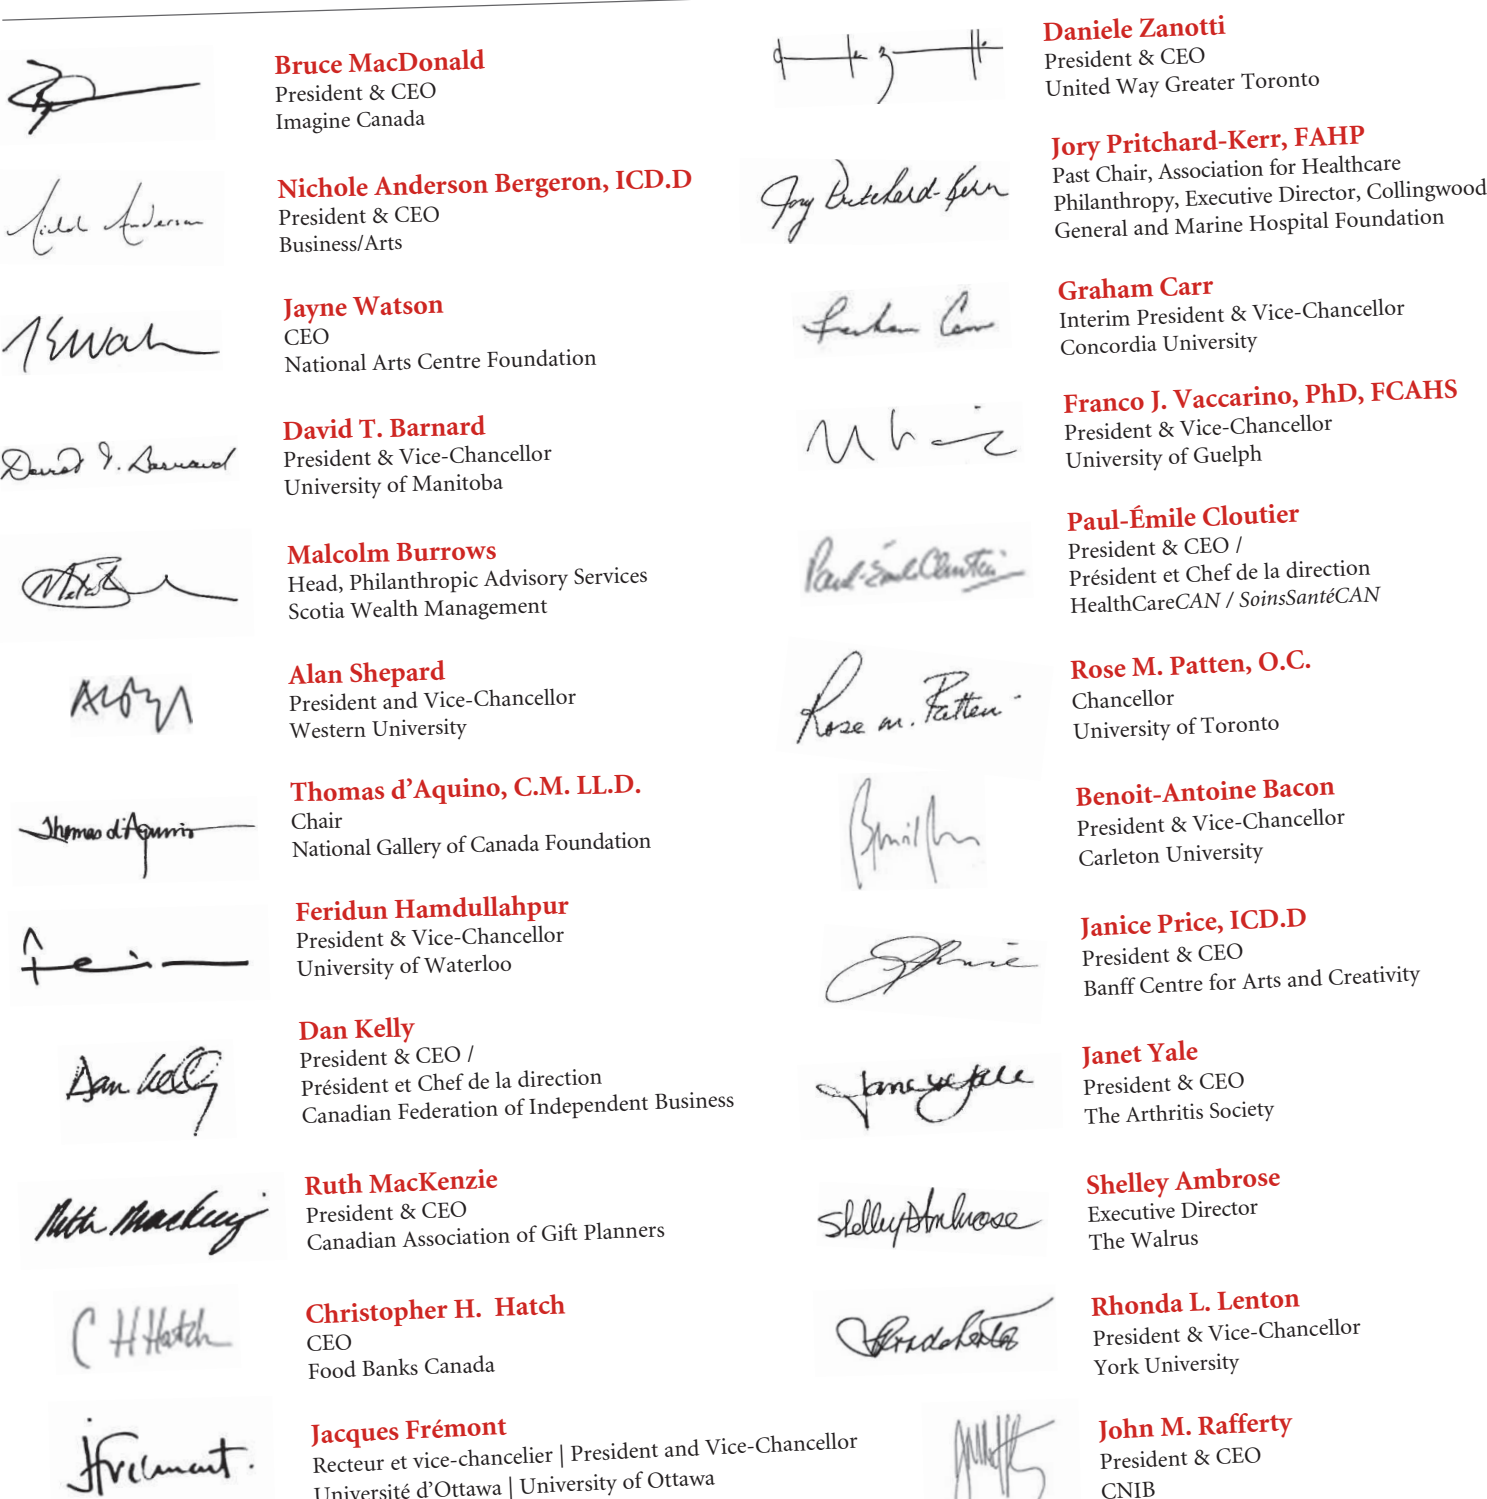 Bruce MacDonald
President & CEO
Imagine Canada
Nichole Anderson Bergeron, ICD.D
President & CEO
Business/Arts
Jayne Watson
CEO
National Arts Centre Foundation
David T. Barnard
President & Vice-Chancellor
University of Manitoba
Malcolm Burrows
Head, Philanthropic Advisory Services
Scotia Wealth Management
Alan Shepard
President and Vice-Chancellor
Western University
Thomas d'Aquino
Thomas d’Aquino, C.M. LL.D.
Chair
National Gallery of Canada Foundation
Feridun Hamdullahpur
President & Vice-Chancellor
University of Waterloo
Dan Kelly
Dan Kelly
President & CEO /
Président et Chef de la direction
Canadian Federation of Independent Business
Ruth MacKenzie
President & CEO
Canadian Association of Gift Planners
C H Hatch
Christopher H. Hatch
CEO
Food Banks Canada
Jacques Frémont
Recteur et vice-chancelier | President and Vice-Chancellor
Université d’Ottawa | University of Ottawa
Daniele Zanotti
President & CEO
United Way Greater Toronto
Jory Pritchard-Kerr
Jory Pritchard-Kerr, FAHP
Past Chair, Association for Healthcare
Philanthropy, Executive Director, Collingwood
General and Marine Hospital Foundation
Graham Carr
Interim President & Vice-Chancellor
Concordia University
Franco J. Vaccarino, PhD, FCAHS
President & Vice-Chancellor
University of Guelph
Paul-Émile Cloutier
President & CEO /
Président et Chef de la direction
HealthCareCAN / SoinsSantéCAN
Rose M. Patten
Rose M. Patten, O.C.
Chancellor
University of Toronto
Benoit-Antoine Bacon
President & Vice-Chancellor
Carleton University
Janice Price, ICD.D
President & CEO
Banff Centre for Arts and Creativity
Janet Yale
President & CEO
The Arthritis Society
Shelley Ambrose
Shelley Ambrose
Executive Director
The Walrus
Rhonda L. Lenton
President & Vice-Chancellor
York University
John M. Rafferty
President & CEO
CNIB